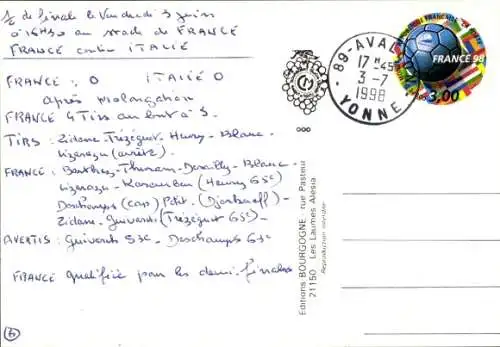 1/4 de finale le Vendredi 3 juin
à 16H30 au stade de FRANCE
FRANCE contre ITALIE
FRANCE : 0 ITALIE 0
après prolongation
FRANCE 4 Tirs au but à 3
TIRS : Zidane - Trézéguet - Henry - Blanc -
Lizarazu (arrêté).
FRANCE : Barthez - Thuram - Desailly - Blanc -
Lizarazu - Karembeu (Henry 65e)
Deschamps (cap) Petit - (Djorkaeff) -
Zidane - Guivarch (Trézéguet 65e) -
AVERTIS : Guivarch 53e - Deschamps 63e
FRANCE qualifiée pour les demi-finales
6
89 - AVALLON
17 H 45
3 - 7
1998
YONNE
FRANCE 98
3,00
Editions BOURGOGNE, rue Pasteur
21150 Les Laumes Alésia
Reproduction interdite